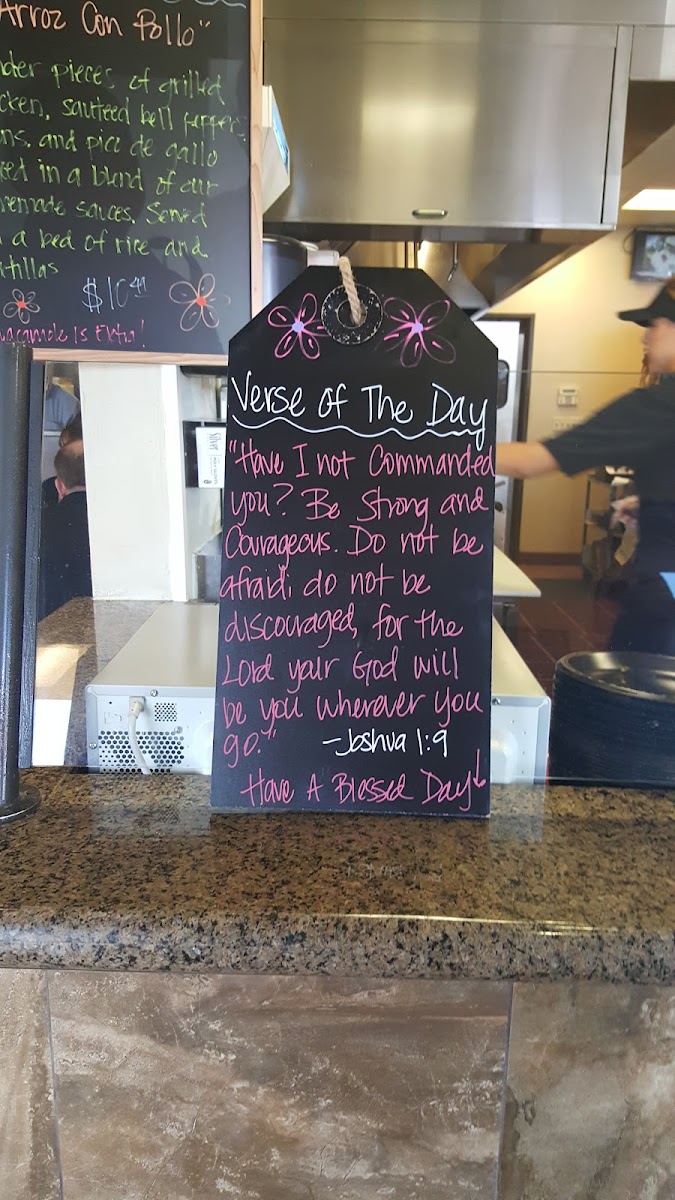 Arroz Con Pollo"
pieces of grilled
sauteed bell
and pico de gallo
in a blend of our
sauces. Served
a bed of rice and
$10
Is Extra!
Verse of The Day
"Have I not Commanded
you? Be Strong and
Courageous. Do not be
afraid; do not be
discouraged, for the
Lord your God will
be you wherever you
go."
-Joshua 1:9
Have A Blessed Day